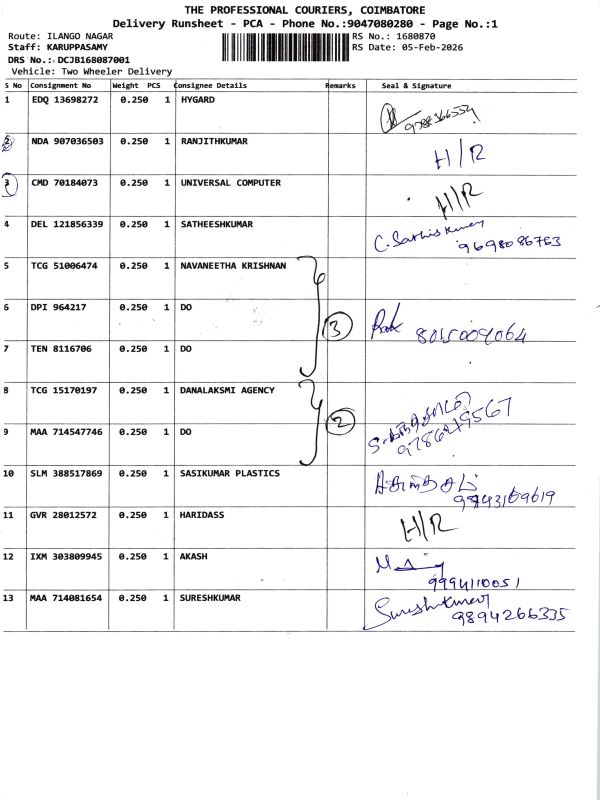 THE PROFESSIONAL COURIERS, COIMBATORE
Delivery Runsheet - PCA - Phone No.:9047080280 - Page No.:1
Route: ILANGO NAGAR RS No.: 1680870
Staff: KARUPPASAMY RS Date: 05-Feb-2026
DRS No.: DCJB168087001
Vehicle: Two Wheeler Delivery
S No Consignment No Weight PCS Consignee Details Remarks Seal & Signature
1 EDQ 13698272 0.250 1 HYGARD
2 NDA 907036503 0.250 1 RANJITHKUMAR H/R
3 CMD 70184073 0.250 1 UNIVERSAL COMPUTER H/R
4 DEL 121856339 0.250 1 SATHEESHKUMAR C. Sathiskumar 9698086763
5 TCG 51006474 0.250 1 NAVANEETHA KRISHNAN
6 DPI 964217 0.250 1 DO 3 8015009064
7 TEN 8116706 0.250 1 DO
8 TCG 15170197 0.250 1 DANALAKSMI AGENCY
9 MAA 714547746 0.250 1 DO 2
10 SLM 388517869 0.250 1 SASIKUMAR PLASTICS
11 GVR 28012572 0.250 1 HARIDASS H/R
12 IXM 303809945 0.250 1 AKASH 9994110051
13 MAA 714081654 0.250 1 SURESHKUMAR Sureshkumar 9894266335